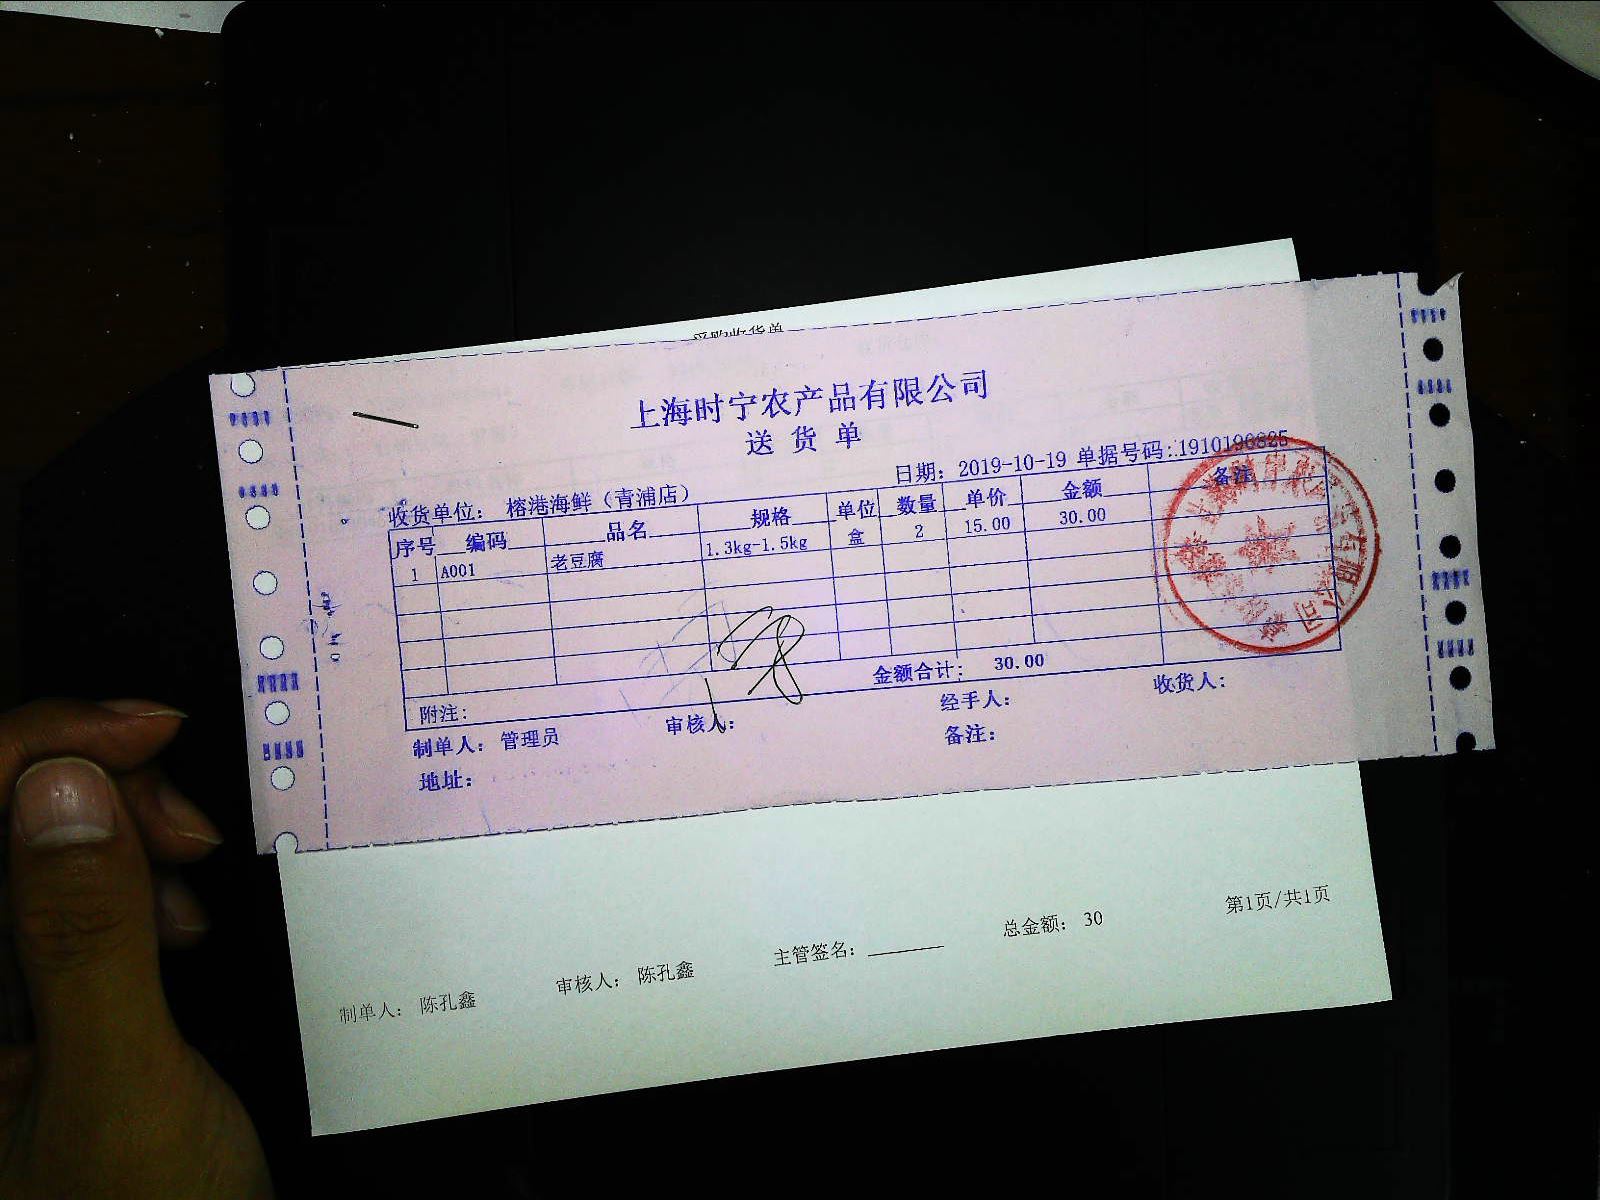 采购收货单
上海时宁农产品有限公司
送货单
日期：2019-10-19 单据号码：1910196825
收货单位： 榕港海鲜（青浦店）
序号 编码 品名 规格 单位 数量 单价 金额 备注
1 A001 老豆腐 1.3kg-1.5kg 盒 2 15.00 30.00
金额合计： 30.00
附注：
制单人： 管理员 审核人： 经手人： 收货人：
地址： 备注：
制单人： 陈孔鑫 审核人： 陈孔鑫 主管签名： 总金额： 30 第1页/共1页